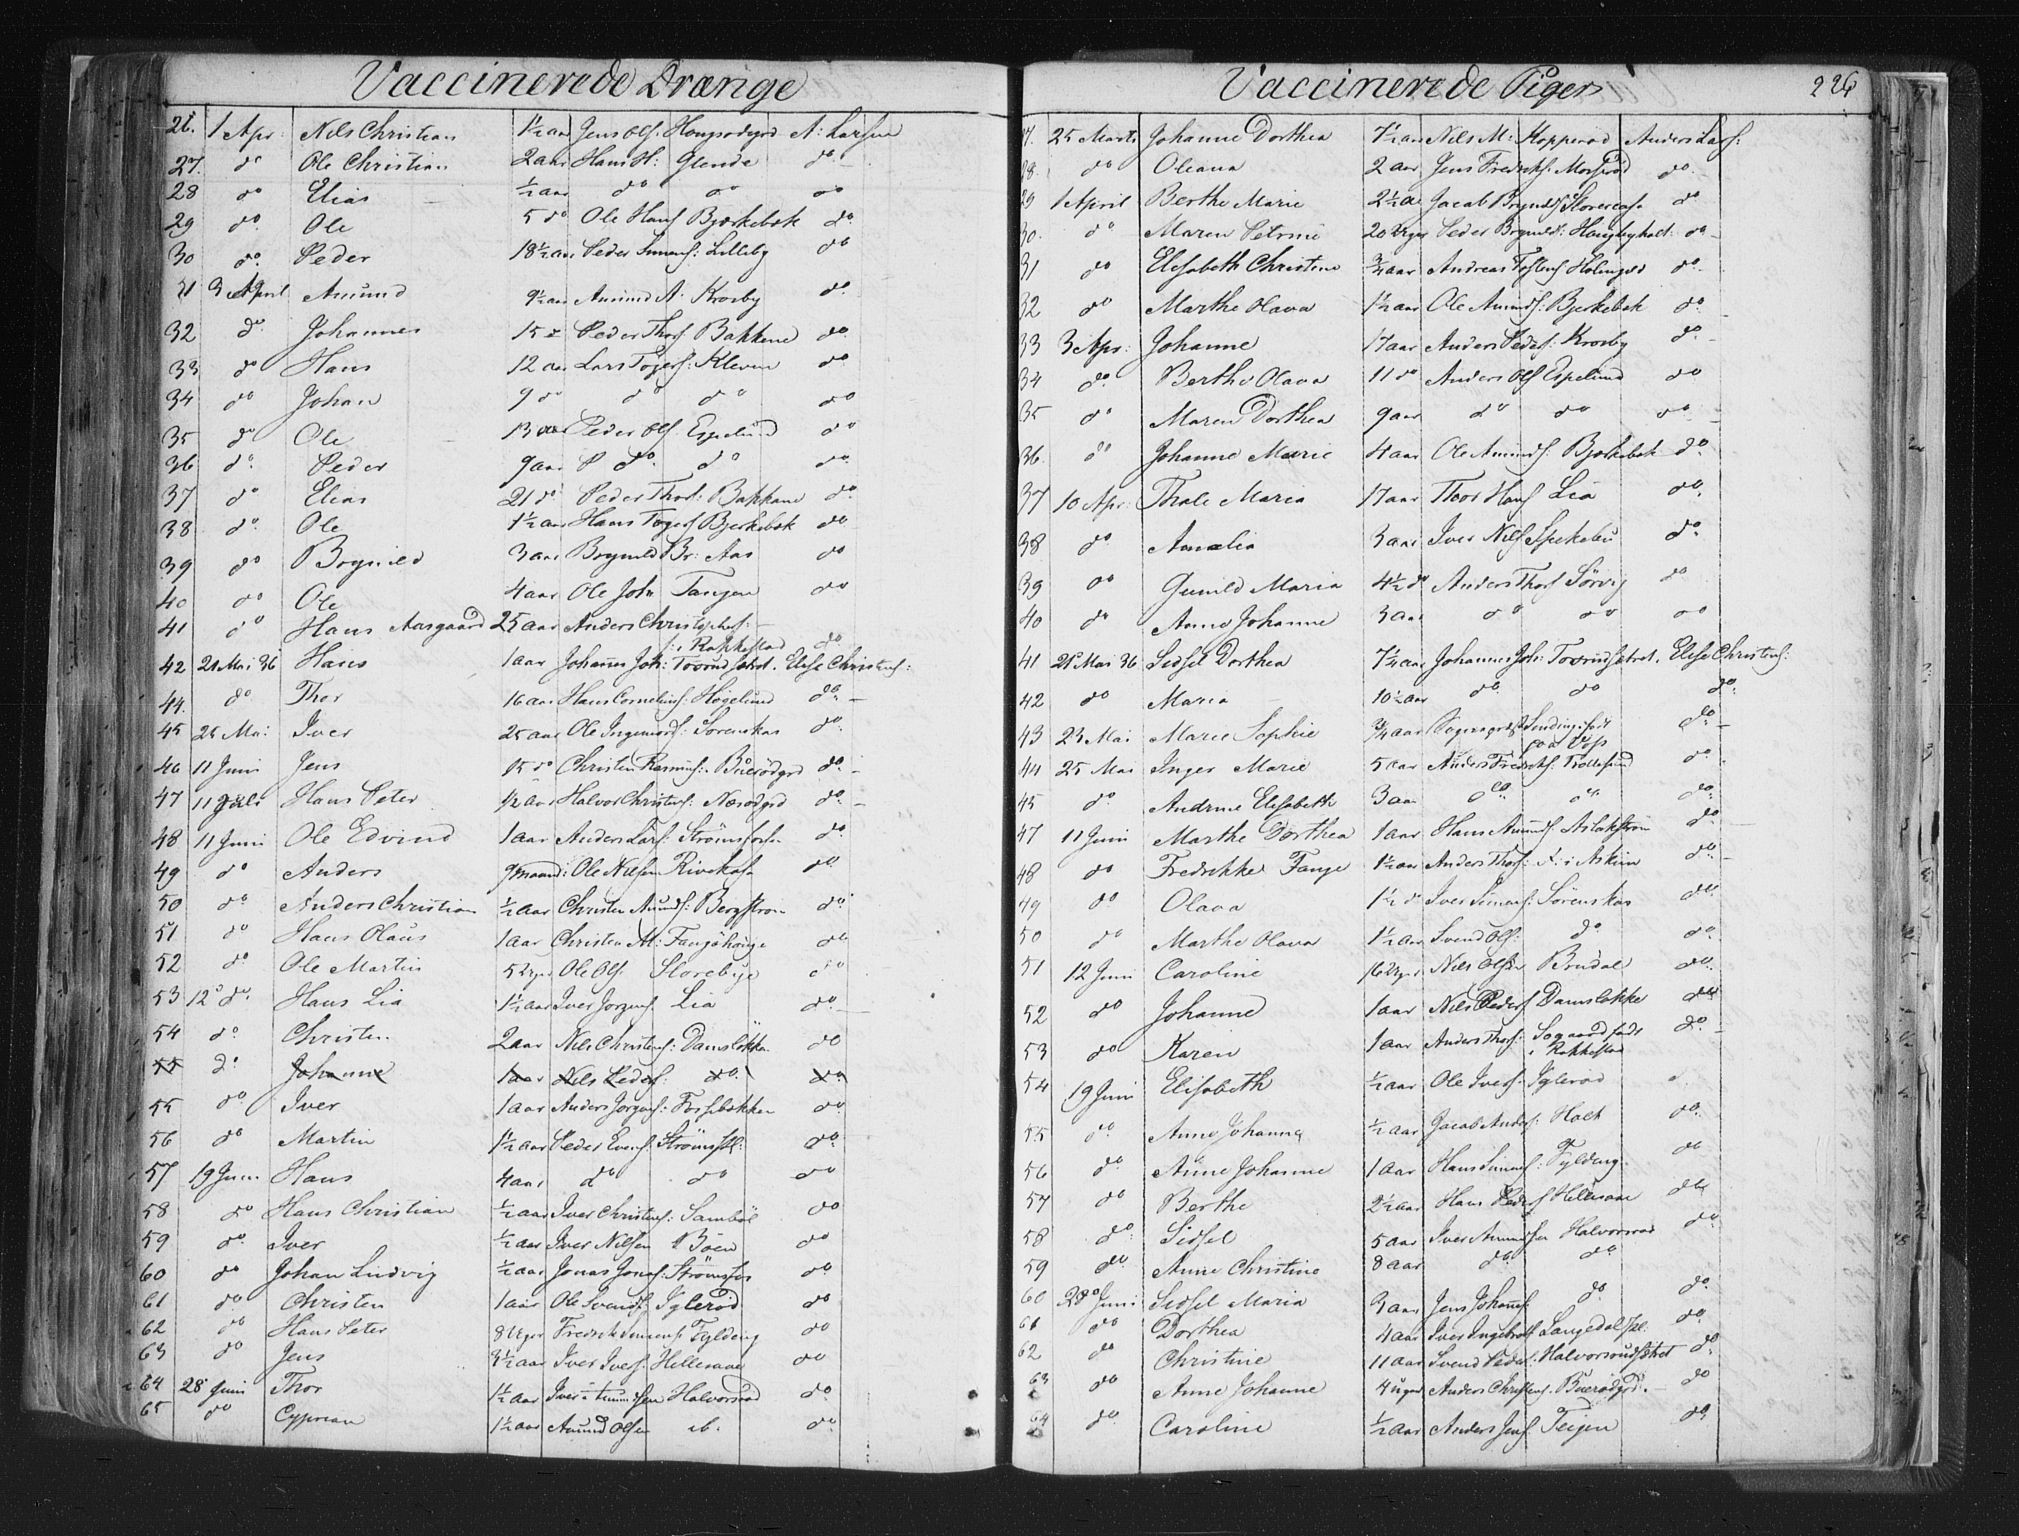 Vaccinerede Drænge
26. 1 Apr: Nils Christian 1½ aar Jens Ols. A: Larsen
27. do Ole Christian 2 aar Hans H: Glende do
28 do Elias ½ aar do do do
29 do Ole 5 do Ole Hans Bjerkebæk do
30 do Peder 18½ aar Peder Lilleby do
31 3 April Amund 9½ aar Amund A. Krosby do
32 do Johannes 15 Peder Thors Bakkene do
33 do Hans 12 aar Lars Kleven do
34 do Johan 9 do do do do
35 do Ole 13 aar Peder Ols Espelund do
36 do Peder 9 aar do do do
37 do Elias 21 do Peder Thors: Bakkene do
38 do Ole 1½ aar Hans Bjerkebæk do
39 do Brynild 3 aar Brynild Br: Aas do
40 do Ole 4 aar Ole Joh Tangen do
41 do Hans Aasgaard 25 aar Anders Christophs:
i Rakkestad do
42 21 Mai 36 Hans 1 aar Johannes Joh: Elise Christens:
44. do Thor 16 aar Hans Cornelius: Høgelund do
45 25 Mai Iver 25 aar Ole Sørenskas do
46 11 Juni Jens 15 do Christen do
47 11 Juli Hans Peter ½ aar Halvor Christens: do
48 11 Juni Ole Edvind 1 aar Anders Lars: Strømsfossen do
49 do Anders 9 maand: Ole Nilsen do
50 do Anders Christian ½ aar Christen Amunds: Bergstrøm do
51 do Hans Olaus 1 aar Christen do
52 do Ole Martin 5 Uger Ole Ols. Storebye do
53 12 do Hans Lia 1½ aar Iver Jørgens: Lia do
54 do Christen 2 aar Nils Christens: Damsløkka do
55 do Johanne 1 aar Nils Peders: do do
55 do Iver 1 aar Anders Jørgens: Fossebækken do
56 do Martin 1½ aar Peder Evens: do
57 19 Juni Hans 4 aar do do do
58 do Hans Christian ½ aar Iver Christens: Sambøl do
59 do Iver ½ aar Iver Nilsen Bøen do
60 do Johan Ludvig ½ aar Jonas Jonas: Strømsfos do
61 do Christen 1 aar Ole Svends: Iglerød do
62 do Hans Peter 8 Uger Fredrik Fylding do
63 do Jens 3½ aar Iver Ivers. Helleraae do
64 28 Juni Thor 1½ aar Iver Amundsen Halvorsrød do
65 do Cyprian 1½ aar Amund Olsen ib. do
Vaccinerede Piger 226
25 Marts Johanne Dorthea 7½ aar Nils M: Kopperød Anders Lars:
28. do Oleana 2 aar Jens Fredriks. do
29 1 April Berthe Marie 2½ a Jacob Brynilds do
30. do Maren Petrine 20 Uger Peder Brynilds: do
31 do Elisabeth Christine ¾ aar Andreas do
32 do Marthe Olava 1½ aar Ole Amunds: Bjerkebæk do
33 3 Apr: Johanne 17 aar Anders Peders: Krosby do
34 do Berthe Olava 11 do Anders Ols Espelund do
35 do Maren Dorthea 9 aar do do do
36. do Johanne Marie 4 aar Ole Amunds. Bjerkebæk do
37 10 Apr: Thale Maria 17 aar Thor Hans Lia do
38 do Amalia 3 aar Iver Nils Spekebu do
39 do Gunild Maria 4½ do Anders Thors Sørvig do
40 do Anne Johanne 3 aar do do do
41 21 Mai 36 Sidsel Dorthea 7½ aar Johannes Joh: Elise Christens:
42 do Maria 10½ aar do do do
43 23 Mai Marie Sophie ¾ aar do
44 25 Mai Inger Marie 5 aar Anders Fredriks: Trollesund do
45 do Andrine Elisabeth 3 aar do do do
47 11 Juni Marthe Dorthea 1 aar Hans Amunds. Aslakstrøm do
48 do Fredrikke Tange 1½ aar Anders Thors: i Askim do
49 do Olava 1½ do Iver Simens: Sørenskas do
50 do Marthe Olava 1½ aar Svend Ols: do do
51 12 Juni Caroline 16 Uger Nils Olsen Brudal do
52 do Johanne 1 aar Nils Peders Damsløkke do
53 do Karen 1 aar Anders Thors:
i Rakkestad do
54 19 Juni Elisabeth ½ aar Ole Ivers. Iglerød
55 do Anne Johanne ½ aar Jacob Anders: Holt do
56 do Anne Johanne 1 aar Hans Simens: Fylding do
57 do Berthe 2½ aar Hans Peders Helleraae do
58 do Sidsel 5 aar Iver Amundsen Halvorsrød do
59 do Anne Christine 8 aar do do
60 28 Juni Sidsel Maria 3 aar Jens Johans: do do
61 do Dorthea 4 aar Iver Ingebrets. do
62 do Christine 11 aar Svend Peders. do
63 do Anne Johanne 4 uger Anders Christens. do
64 do Caroline ½ aar Anders Jens. Teigen do